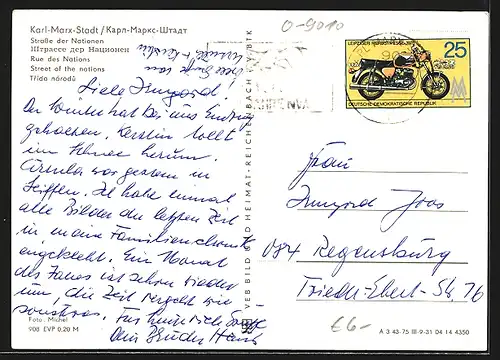 Karl-Marx-Stadt / Карл-Маркс-Штадт
Straße der Nationen
Штрассе дер Национен
Rue des Nations
Street of the nations
Třída národů
O-9010
LEIPZIGER HERBSTMESSE
25
DEUTSCHE DEMOKRATISCHE REPUBLIK
Liebe Irmgard!
Der Winter hat bei uns Einzug
gehalten. Kerstin tollt
im Schnee herum.
Ursula war gestern in
Seiffen. Ich habe einmal
alle Bilder der letzten Zeit
in meine Familienchronik
eingeklebt. Ein Monat
des Jahres ist schon wieder
um, die Zeit vergeht wie
sonstwas. Für heute
Dein Bruder Hans
VEB BILD UND HEIMAT · REICHENBACH I. V. BTK
Frau
Irmgard Joas
084 Regensburg
Friedr.-Ebert-Str. 76
Foto: Michel
908 EVP 0,20 M
€6-
A 3 43-75 III-9-31 04 14 4350